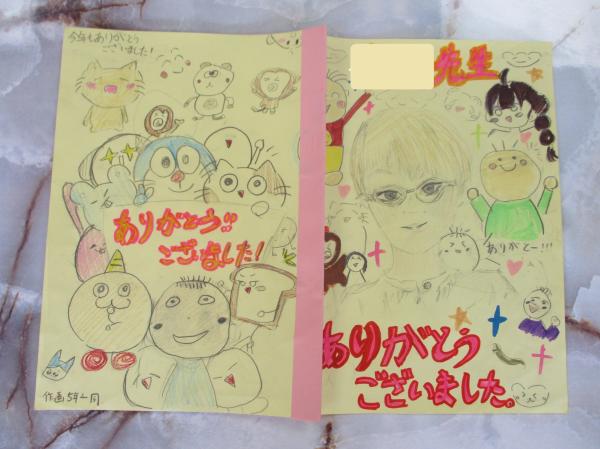 今年もありがとう
ございました!
ありがとう!!
ございました!
作画 5年一同
先生
ありがとー!!!
ありがとう
ございました。